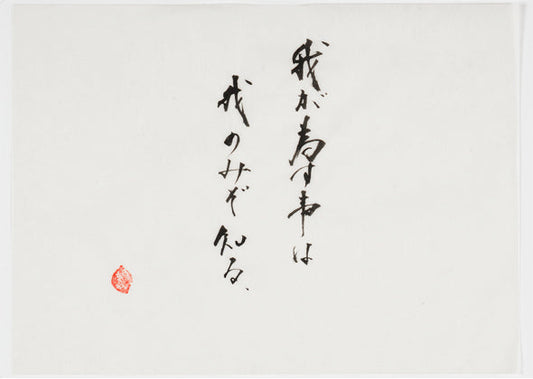 我が為す事は
我のみぞ知る、